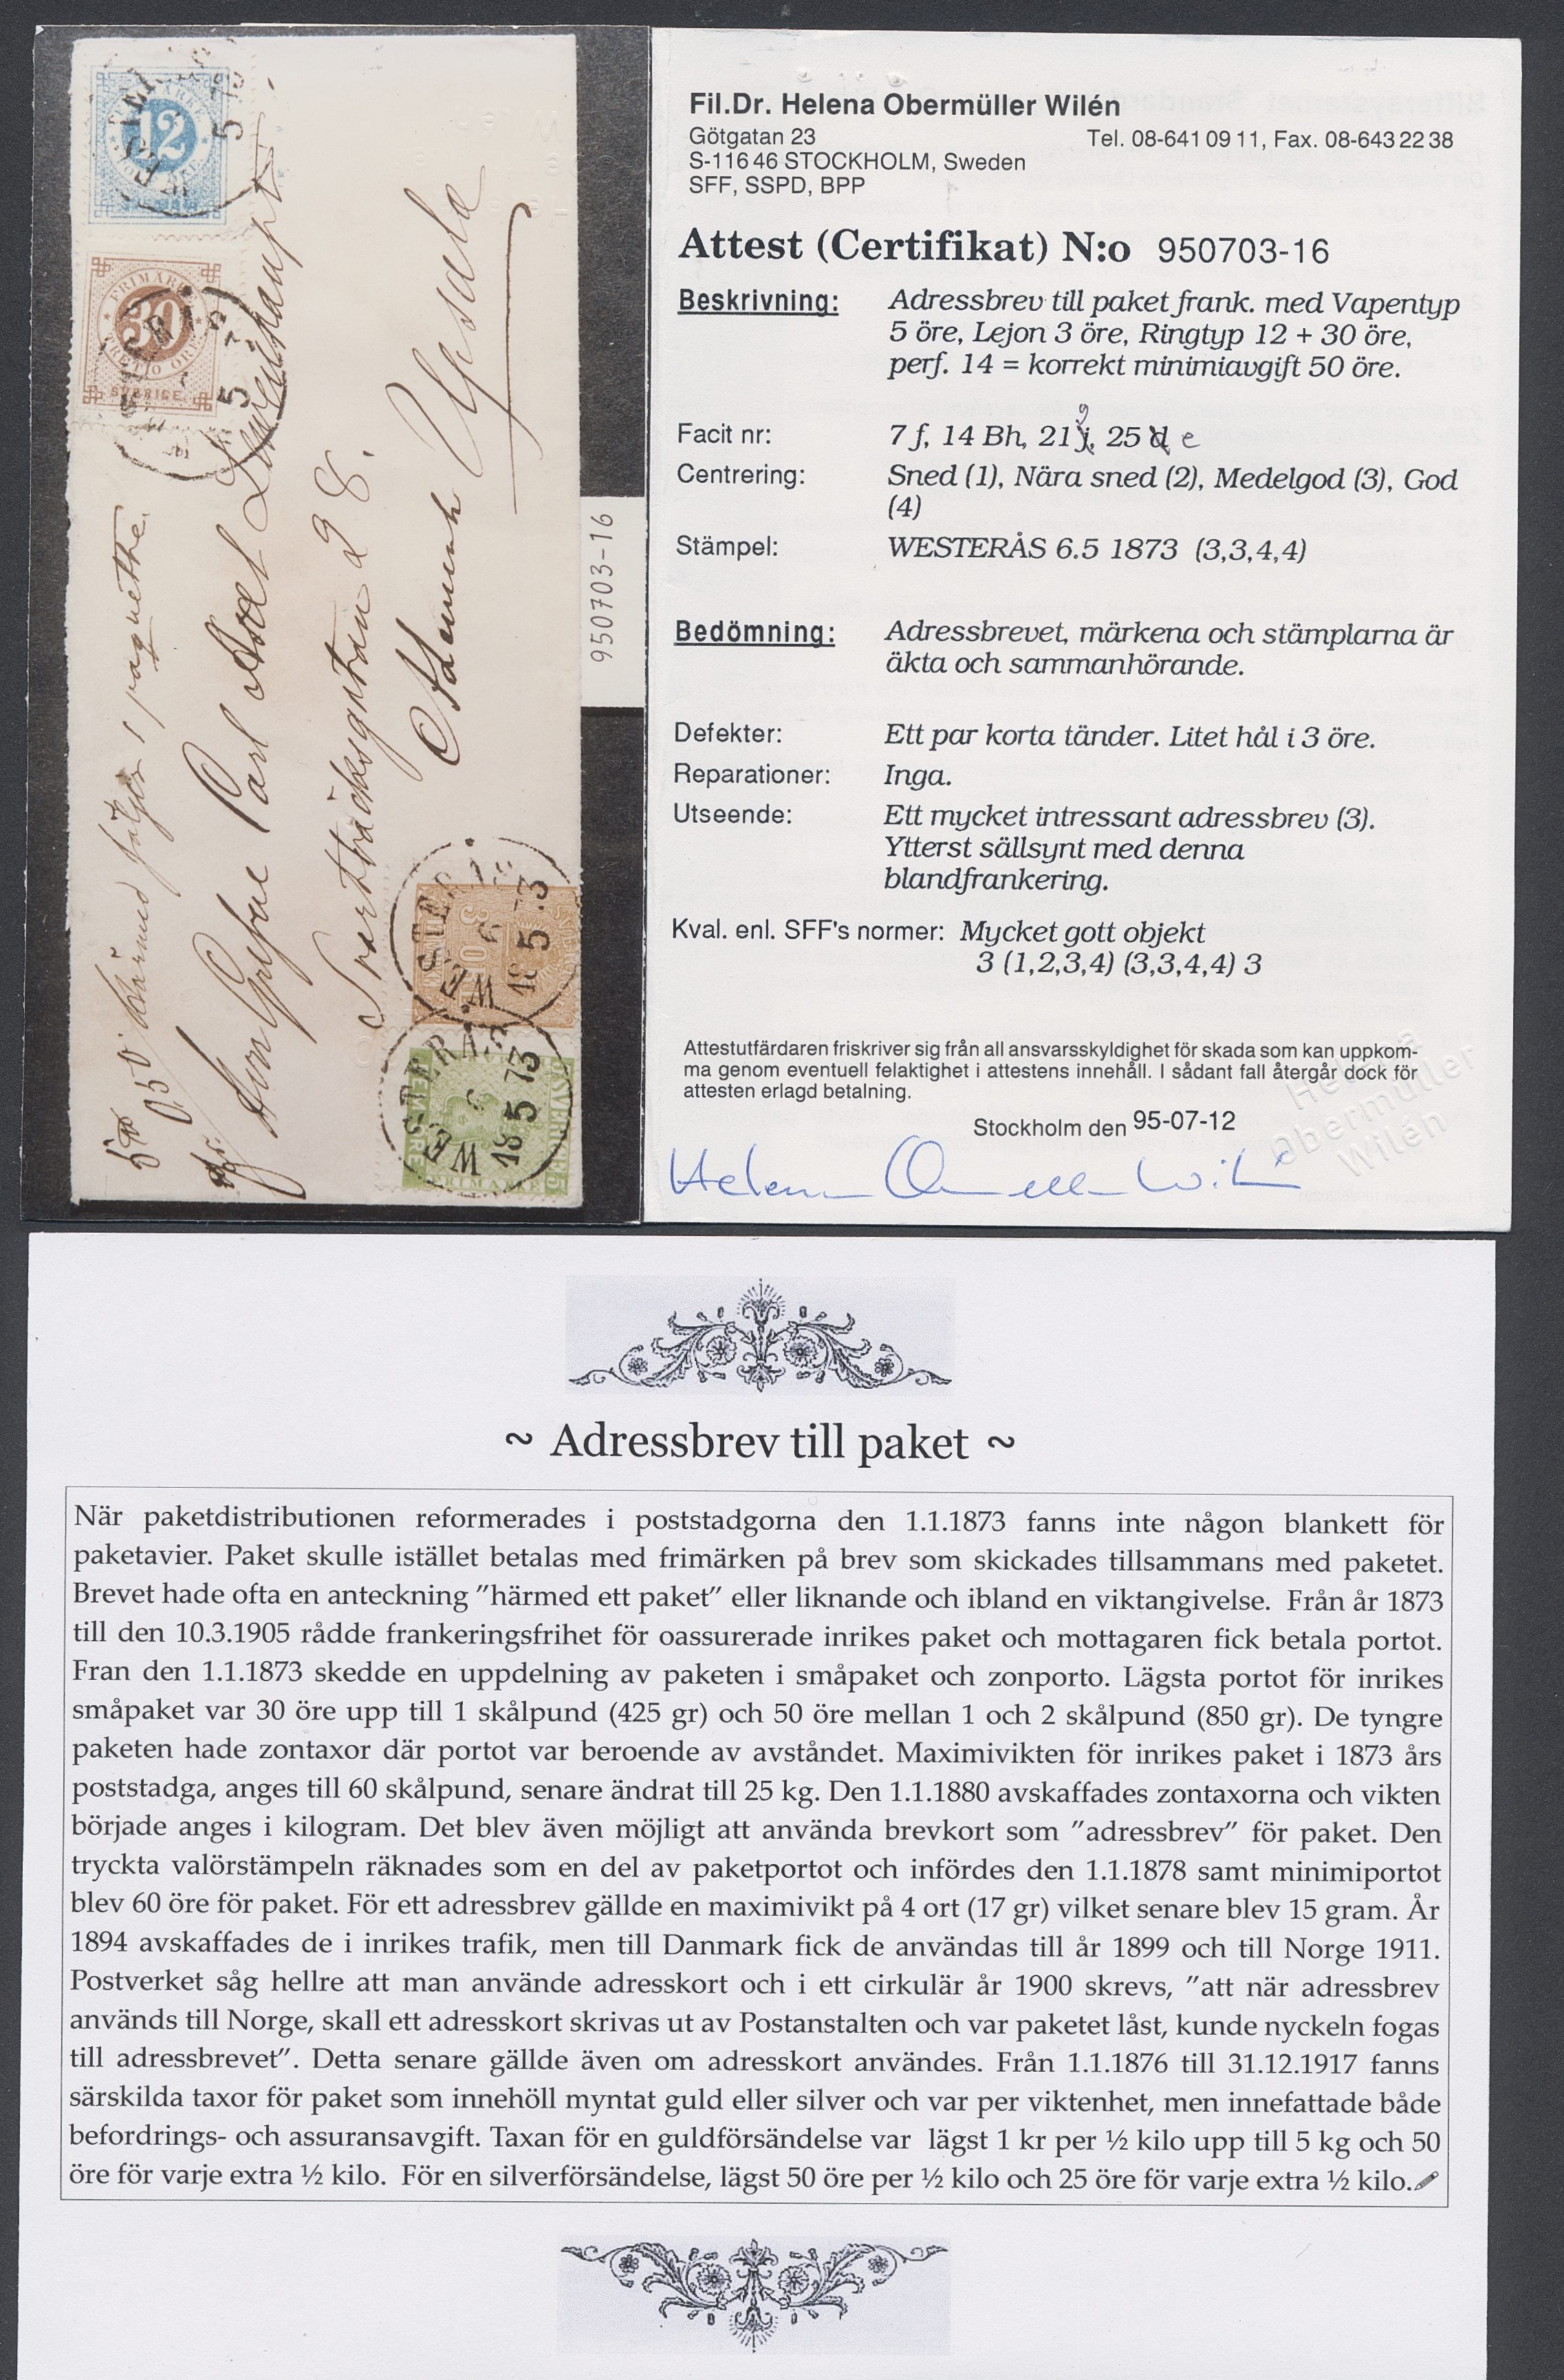 12
5
FRIMÄRKE
30
TRETTIO ÖRE
SVERIGE
5
Härmed följer 1 paquette.
0,50
Carl Axel Lewenhaupt
Svartbäcksgatan 28.
Upsala
WESTERÅS
6
18 5 73
WESTERÅS
6
18 5 73
SVERIGE
FRIMÄRKE
FEM ÖRE
950703-16
Fil.Dr. Helena Obermüller Wilén
Götgatan 23 Tel. 08-641 09 11, Fax. 08-643 22 38
S-116 46 STOCKHOLM, Sweden
SFF, SSPD, BPP
Attest (Certifikat) N:o 950703-16
Beskrivning: Adressbrev till paket frank. med Vapentyp
5 öre, Lejon 3 öre, Ringtyp 12 + 30 öre,
perf. 14 = korrekt minimiavgift 50 öre.
Facit nr: 7 f, 14 Bh, 21 g, 25 e
Centrering: Sned (1), Nära sned (2), Medelgod (3), God
(4)
Stämpel: WESTERÅS 6.5 1873 (3,3,4,4)
Bedömning: Adressbrevet, märkena och stämplarna är
äkta och sammanhörande.
Defekter: Ett par korta tänder. Litet hål i 3 öre.
Reparationer: Inga.
Utseende: Ett mycket intressant adressbrev (3).
Ytterst sällsynt med denna
blandfrankering.
Kval. enl. SFF's normer: Mycket gott objekt
3 (1,2,3,4) (3,3,4,4) 3
Attestutfärdaren friskriver sig från all ansvarsskyldighet för skada som kan uppkom-
ma genom eventuell felaktighet i attestens innehåll. I sådant fall återgår dock för
attesten erlagd betalning.
Stockholm den 95-07-12
Helena
Obermüller
Wilén
Helena Obermüller Wilén
~ Adressbrev till paket ~
När paketdistributionen reformerades i poststadgorna den 1.1.1873 fanns inte någon blankett för
paketavier. Paket skulle istället betalas med frimärken på brev som skickades tillsammans med paketet.
Brevet hade ofta en anteckning ”härmed ett paket” eller liknande och ibland en viktangivelse. Från år 1873
till den 10.3.1905 rådde frankeringsfrihet för oassurerade inrikes paket och mottagaren fick betala portot.
Fran den 1.1.1873 skedde en uppdelning av paketen i småpaket och zonporto. Lägsta portot för inrikes
småpaket var 30 öre upp till 1 skålpund (425 gr) och 50 öre mellan 1 och 2 skålpund (850 gr). De tyngre
paketen hade zontaxor där portot var beroende av avståndet. Maximivikten för inrikes paket i 1873 års
poststadga, anges till 60 skålpund, senare ändrat till 25 kg. Den 1.1.1880 avskaffades zontaxorna och vikten
började anges i kilogram. Det blev även möjligt att använda brevkort som ”adressbrev” för paket. Den
tryckta valörstämpeln räknades som en del av paketportot och infördes den 1.1.1878 samt minimiportot
blev 60 öre för paket. För ett adressbrev gällde en maximivikt på 4 ort (17 gr) vilket senare blev 15 gram. År
1894 avskaffades de i inrikes trafik, men till Danmark fick de användas till år 1899 och till Norge 1911.
Postverket såg hellre att man använde adresskort och i ett cirkulär år 1900 skrevs, ”att när adressbrev
används till Norge, skall ett adresskort skrivas ut av Postanstalten och var paketet låst, kunde nyckeln fogas
till adressbrevet”. Detta senare gällde även om adresskort användes. Från 1.1.1876 till 31.12.1917 fanns
särskilda taxor för paket som innehöll myntat guld eller silver och var per viktenhet, men innefattade både
befordrings- och assuransavgift. Taxan för en guldförsändelse var lägst 1 kr per ½ kilo upp till 5 kg och 50
öre för varje extra ½ kilo. För en silverförsändelse, lägst 50 öre per ½ kilo och 25 öre för varje extra ½ kilo.